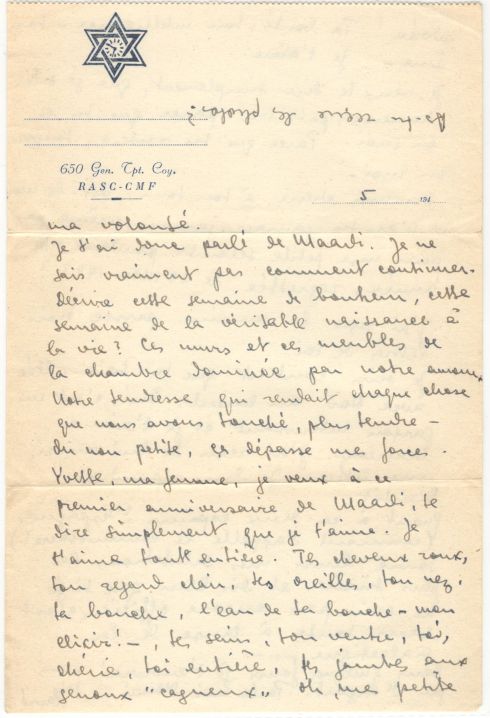 As-tu reçue les photos?
650 Gen. Tpt. Coy.
RASC-CMF
5 194
ma volonté.
Je t'ai donc parlé de Maadi. Je ne
sais vraiment pas comment continuer.
décrire cette semaine de bonheur, cette
semaine de la véritable naissance à
la vie? Ces murs et ces meubles de
la chambre dominée par notre amour
Notre tendresse qui rendait chaque chose
que nous avons touché, plus tendre –
du non petite, ça dépasse me forces.
Yvette, ma femme, je veux à ce
premier anniversaire de Maadi, te
dire simplement que je t'aime. Je
t'aime tout entière. Tes cheveux roux,
ton regard clair, tes oreilles, ton nez,
ta bouche, l'eau de ta bouche – mon
elixir! –, tes seins, ton ventre, toi,
chérie, toi entière, tes jambes aux
genoux "cagneux" oh, ma petite